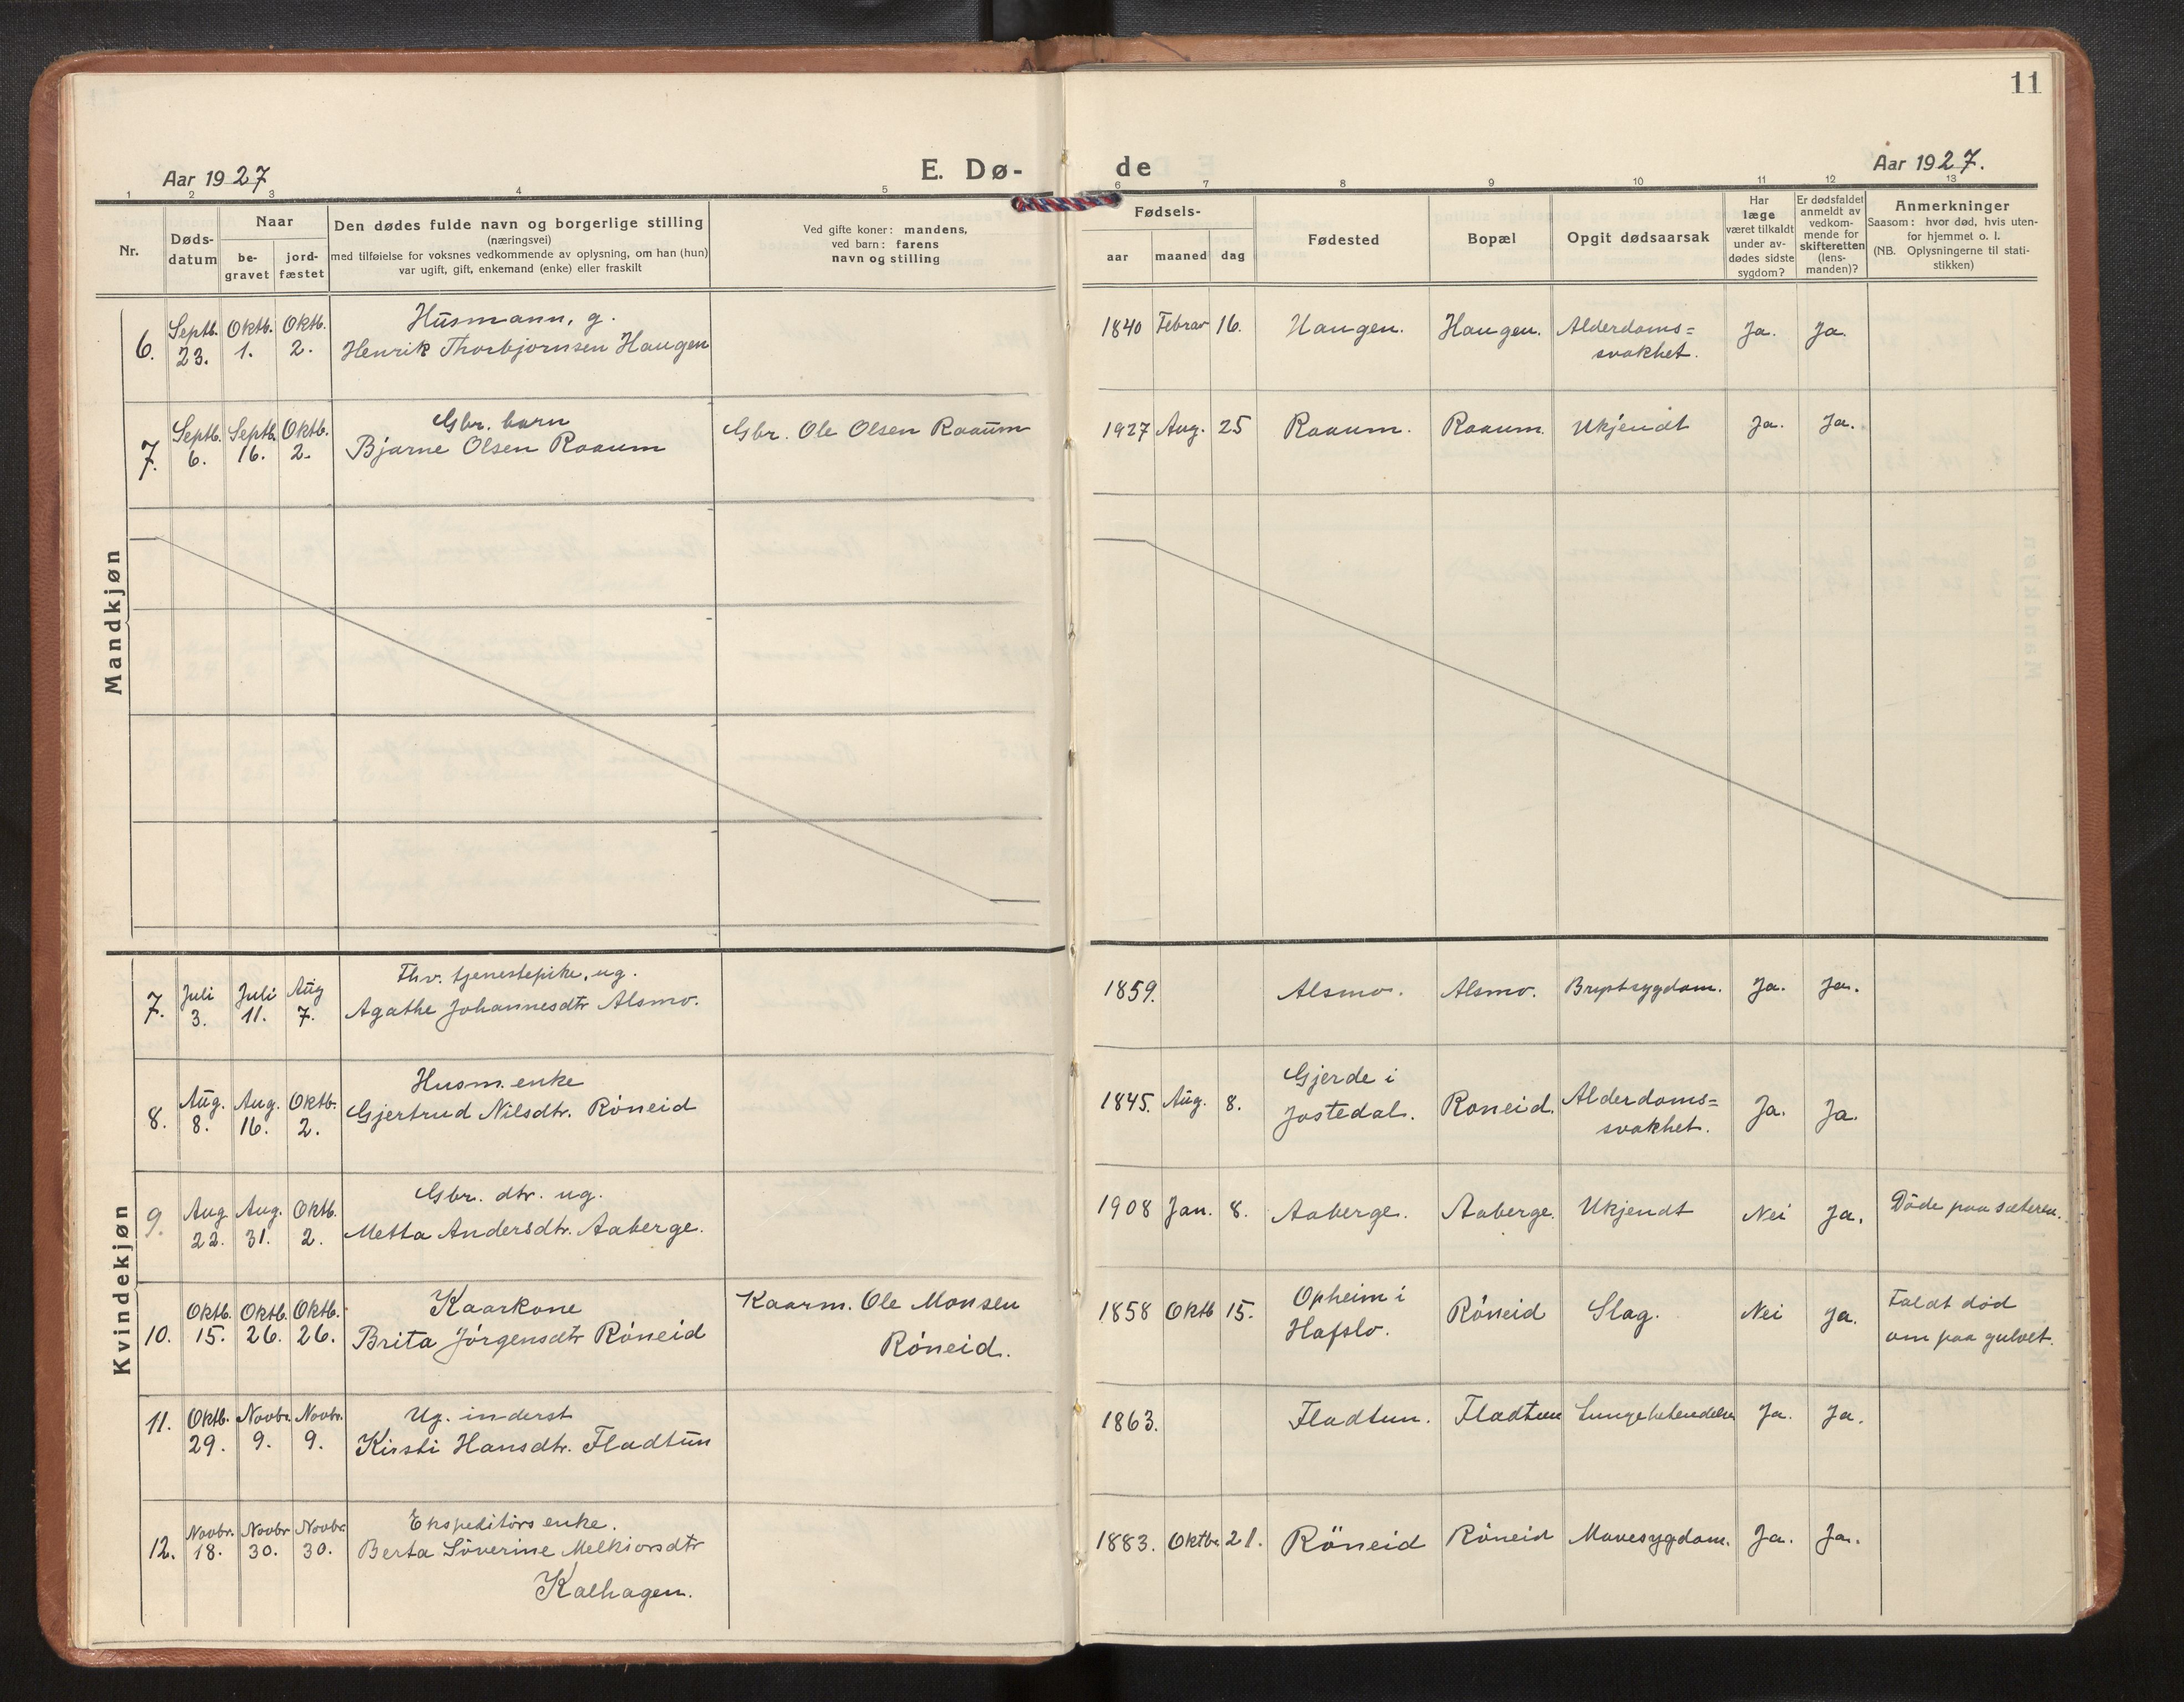 11
Aar 1927
E. Dø-
de
Aar 1927.
1 2 3 4 5 6 7 8 9 10 11 12 13
Nr.
Døds-
datum
Naar
be-
gravet
jord-
fæstet
Den dødes fulde navn og borgerlige stilling
(næringsvei)
med tilføielse for voksnes vedkommende av oplysning, om han (hun)
var ugift, gift, enkemand (enke) eller fraskilt
Ved gifte koner: mandens,
ved barn: farens
navn og stilling
Fødsels-
aar
maaned
dag
Fødested
Bopæl
Opgit dødsaarsak
Har
læge
været tilkaldt
under av-
dødes sidste
sygdom?
Er dødsfaldet
anmeldt av
vedkom-
mende for
skifteretten
(lens-
manden)?
Anmerkninger
Saasom: hvor død, hvis uten-
for hjemmet o. l.
(NB. Oplysningerne til stati-
stikken)
Mandkjøn
6. Septb. 23. Oktb. 1. Oktb. 2.
Husmann, g.
Henrik Thorbjørnsen Haugen
1840 Febrar 16. Haugen. Haugen. Alderdoms=
svakhet. Ja. Ja.
7. Septb. 6. Septb. 16. Oktb. 2.
Gbr. barn
Bjarne Olsen Raaum
Gbr. Ole Olsen Raaum
1927 Aug. 25 Raaum. Raaum. Ukjendt Ja. Ja.
Kvindekjøn
7. Juli 3. Juli 11. Aug 7.
Fhv. tjenestepike, ug.
Agathe Johannesdtr Alsmo.
1859. Alsmo. Alsmo. Brystsygdom. Ja. Ja.
8. Aug. 8. Aug. 16. Oktb. 2.
Husm. enke
Gjertrud Nilsdtr. Röneid
1845. Aug. 8. Gjerde i
Jostedal. Roneid. Alderdoms=
svakhet. Ja. Ja.
9. Aug 22. Aug. 31. Oktb. 2.
Gbr. dtr. ug.
Metta Andersdtr. Aaberge.
1908 Jan. 8. Aaberge. Aaberge. Ukjendt Nei Ja. Döde paa sæteren.
10. Oktb. 15. Oktb. 26. Oktb. 26.
Kaarkone
Brita Jörgensdtr Röneid
Kaarm. Ole Monsen
Röneid.
1858 Oktb 15. Opheim i
Hafslo. Röneid Slag. Nei Ja. Faldt död
om paa gulvet.
11. Oktb. 29. Novbr. 9. Novbr. 9.
Ug. inderst
Kirsti Hansdtr. Fladtun
1863. Fladtun. Fladtun Lungebetendelse Ja. Ja.
12. Novbr. 18. Novbr 30. Novbr. 30.
Ekspeditörs enke.
Berta Söverine Melkiorsdtr
Kalhagen.
1883. Oktbr. 21. Röneid Röneid Mavesygdom. Ja. Ja.